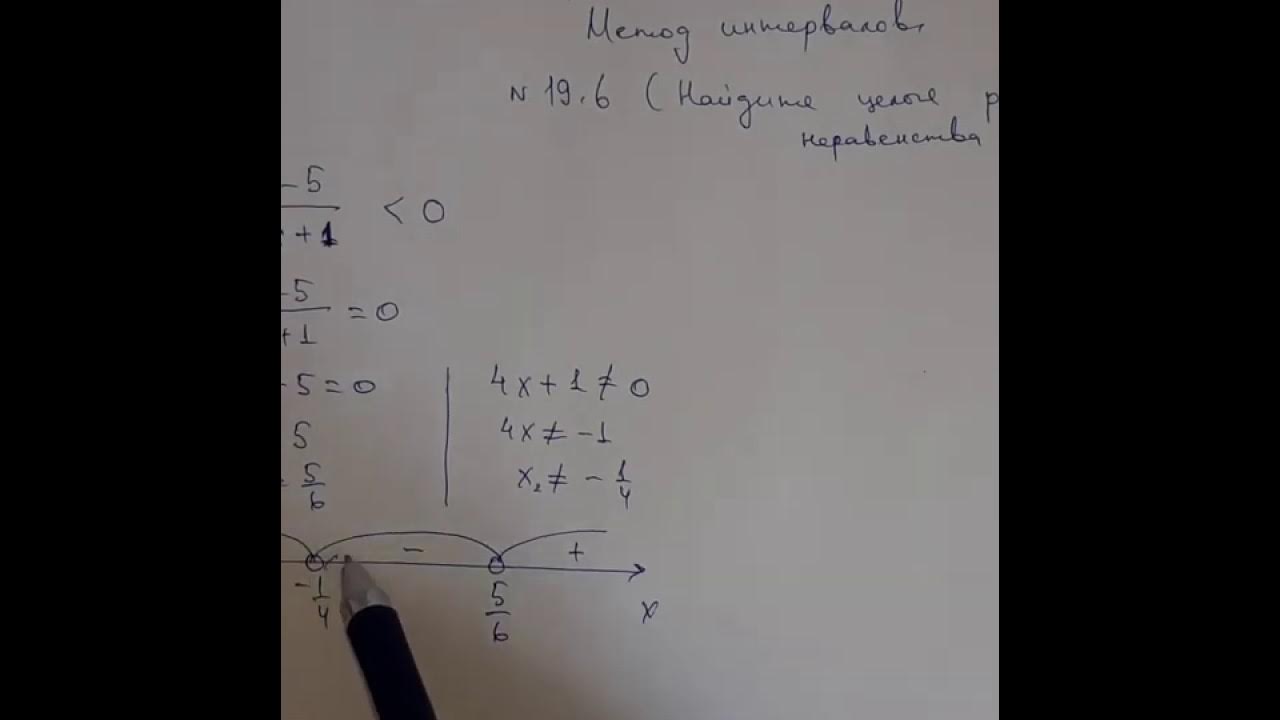 Метод интервалов.
N 19.6 (Найдите целые р
неравенства
-5
+1 < 0
-5
+1 = 0
-5=0 | 4x+1≠0
5 | 4x≠-1
5/6 | x₂≠ - 1/4
- +
-1/4 5/6 x